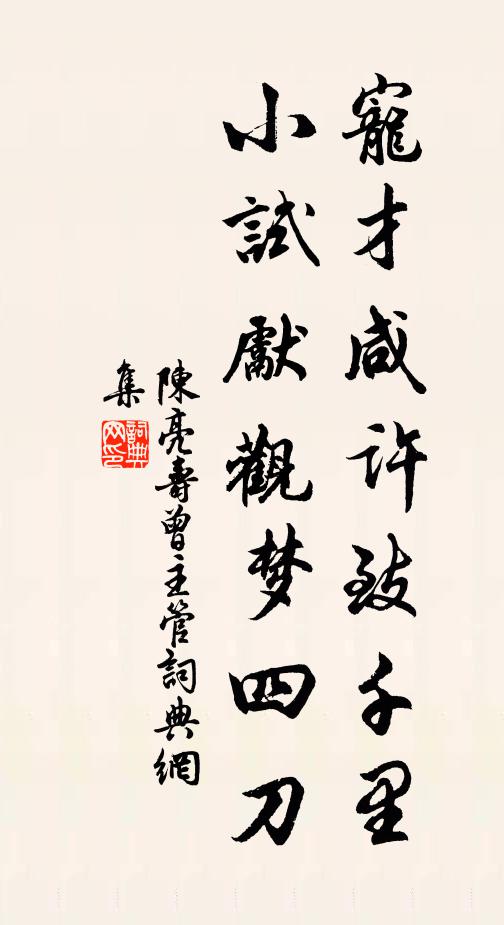 寵才咸許致千里
小試獻觀梦四刀
陳亮壽曾主管詞典網
集
詞典
网印